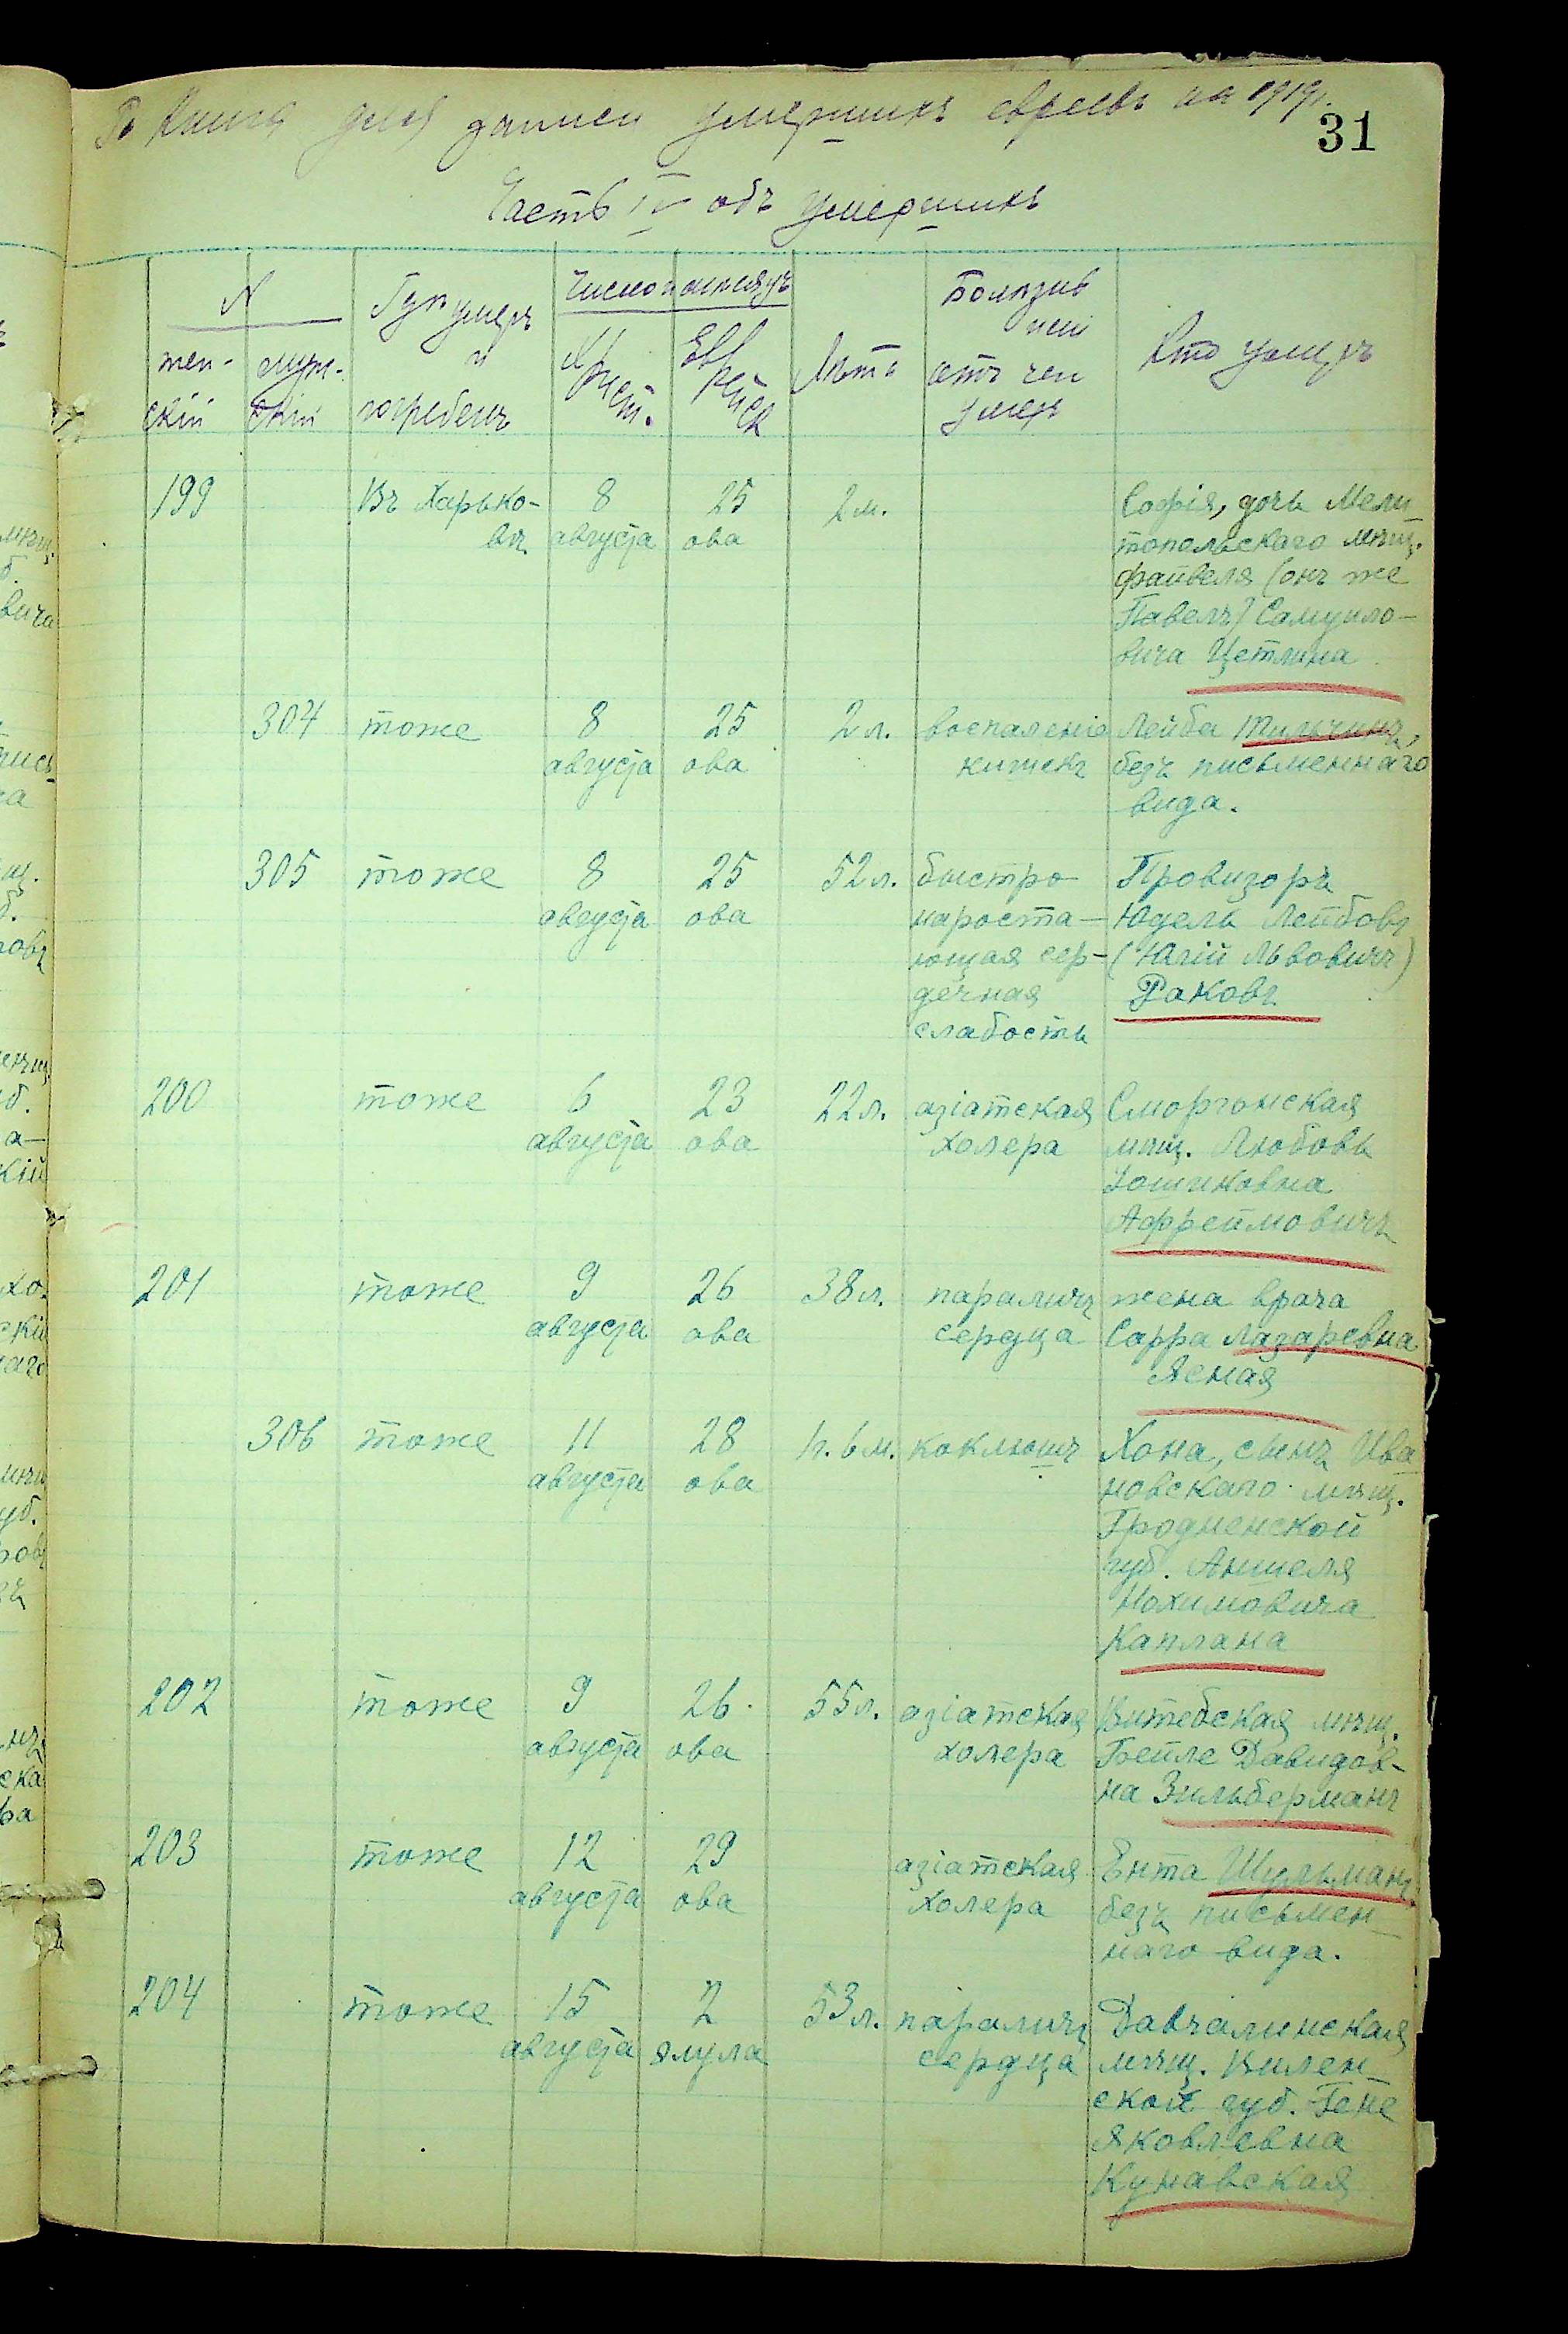 31
Въ Книгѣ для записи умершихъ евреевъ на 1919 г.
Часть IV объ умершихъ
№
жен-
скій
муж-
скій
Гдѣ умеръ
и
погребенъ
Число и мѣсяцъ
Христ.
Еврейск
Лѣта
Болѣзнь
или
отъ чего
умеръ
Кто умеръ
199
Въ Харько-
вѣ
8
августа
25
ова
2 м.
Софія, дочь Мели
топольскаго мѣщ.
Файвеля (онъ же
Павелъ) Самуило-
вича Цетлина
304
тоже
8
августа
25
ова
2 л.
воспаленіе
кишекъ
Лейба Тильчинъ,
безъ письменнаго
вида.
305
тоже
8
августа
25
ова
52 л.
быстро
нароста-
ющая сер-
дечная
слабость
Провизоръ
Юдель Лейбовъ
(Юлій Львовичъ)
Раковъ
200
тоже
6
августа
23
ова
22 л.
азіатская
холера
Сморгонская
мѣщ. Любовь
Афреймовичъ
201
тоже
9
августа
26
ова
38 л.
параличъ
сердца
жена врача
Сарра Лазаревна
Ясная
306
тоже
11
августа
28
ова
1 г. 6 м.
коклюшъ
Хона, сынъ Ива
новскаго мѣщ.
Гродненской
губ. Аншеля
Нохимовича
Каплана
202
тоже
9
августа
26
ова
55 л.
азіатская
холера
Витебская мѣщ.
Бейле Давидов-
на Зильберманъ
203
тоже
12
августа
29
ова
азіатская
холера
Ента Шульманъ
безъ письмен
наго вида.
204
тоже
15
августа
2
элула
53 л.
параличъ
сердца
мѣщ. Вилен
ской губ. Гене
Яковлевна
Кунавская